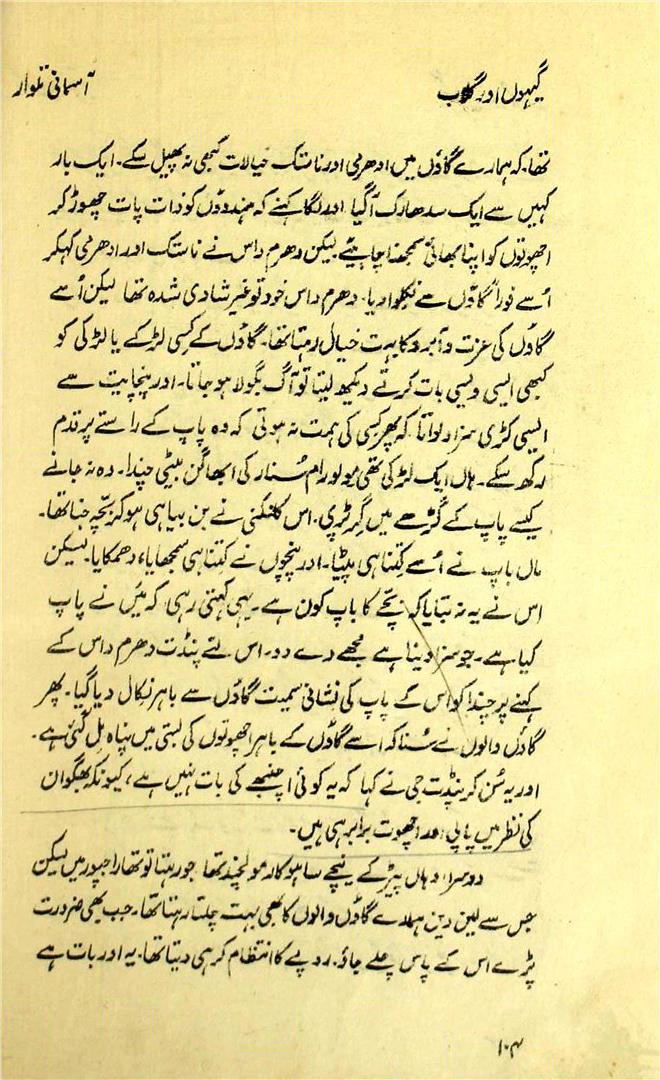 گیہوں اور گلاب
آسمانی تلوار
تھا۔ کہ ہمارے گاؤں میں ادھرمی اور ناستک خیالات کبھی نہ پھیل سکے۔ ایک بار
کہیں سے ایک سدھارک آگیا اور لگا کہنے کہ ہندوؤں کو ذات پات چھوڑ کر
اچھوتوں کو اپنا بھائی سمجھنا چاہیئے لیکن دھرم داس نے ناستک اور ادھرمی کہکر
اُسے فوراً گاؤں سے نکلوا دیا۔ دھرم داس خود تو غیر شادی شدہ تھا لیکن اُسے
گاؤں کی عزت و آبرو کا بہت خیال رہتا تھا۔ گاؤں کے کسی لڑکے یا لڑکی کو
کبھی ایسی ویسی بات کرتے دیکھ لیتا تو آگ بگولا ہو جاتا۔ اور پنچایت سے
ایسی کڑی سزا دلواتا کہ پھر کسی کی ہمت نہ ہوتی کہ وہ پاپ کے راستے پر قدم
رکھ سکے۔ ہاں ایک لڑکی تھی مولو رام سُنار کی ابھاگن بیٹی چندا۔ وہ نہ جانے
کیسے پاپ کے گڑھے میں گر پڑی۔ اس کلنکنی نے بن بیاہی ہو کر بچّہ جنا تھا۔
ماں باپ نے اُسے کِتنا ہی پیٹا۔ اور پنچوں نے کِتنا ہی سمجھایا، دھمکایا۔ لیکن
اس نے یہ نہ بتایا کہ بچّے کا باپ کون ہے۔ یہی کہتی رہی کہ میں نے پاپ
کیا ہے۔ جو سزا دینا ہے مجھے دے دو۔ اس لئے پنڈت دھرم داس کے
کہنے پر چندا کو اس کے پاپ کی نشانی سمیت گاؤں سے باہر نکال دیا گیا۔ پھر
گاؤں والوں نے سُنا کہ اسے گاؤں کے باہر اچھوتوں کی بستی میں پناہ مِل گئی ہے۔
اور یہ سُن کر پنڈت جی نے کہا کہ یہ کوئی اچنبھے کی بات نہیں ہے، کیونکہ بھگوان
کی نظر میں پاپی اور اچھوت برابر ہی ہیں۔
دوسرا وہاں پیڑ کے نیچے ساہوکار مولچند تھا جو رہتا تو تھا راجپور میں لیکن
جس سے لین دین ہمارے گاؤں والوں کا بھی بہت چلتا رہتا تھا۔ جب بھی ضرورت
پڑے اس کے پاس چلے جاؤ۔ روپے کا انتظام کر ہی دیتا تھا۔ یہ اور بات ہے
۱۰۴